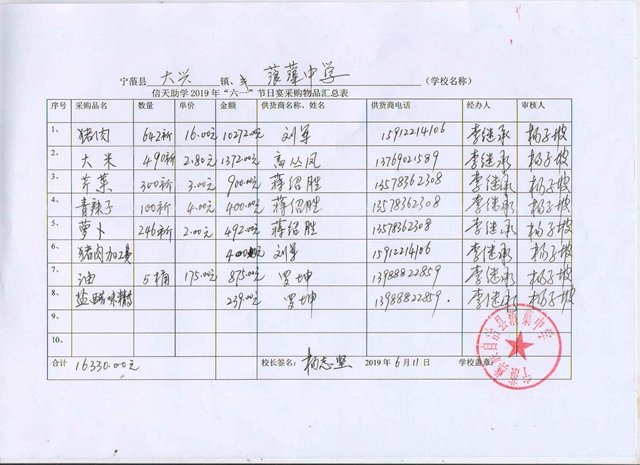 宁蒗县 大兴 镇、乡 蒗蕖中学 (学校名称)
信天助学 2019 年“六一”节日宴采购物品汇总表
序号 采购品名 数量 单价 金额 供货商名称、姓名 供货商电话 经办人 审核人
1、 猪肉 642斤 16.00元 10272.00元 刘军 15912214106 李继承
2、 大米 490斤 2.80元 1372.00元 高丛凤 13769021589 李继承
3、 芹菜 300斤 3.00元 900.00元 蒋绍胜 13578362308 李继承
4、 青辣子 100斤 4.00元 400.00元 蒋绍胜 13578362308 李继承
5、 萝卜 246斤 2.00元 492.00元 蒋绍胜 13578362308 李继承
6、 猪肉加工费 刘军 15912214106 李继承
7、 油 5桶 175.00元 875.00元 罗坤 13988822859 李继承
8、 盐 味精 239.00元 罗坤 13988822859 李继承
9、
10、
合计 16330.00元 校长签名: 杨志坚 2019 年 6 月 11 日 学校盖章: